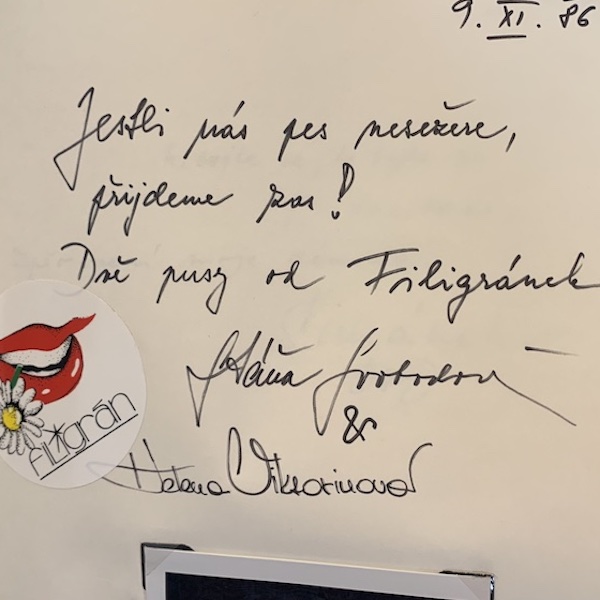 9. XI. 86
Jestli nás pes nesežere,
přijdeme zas!
Dvě pusy od Filigránek
Háňa Svobodová
&
Helena Viktorinová
filigrán